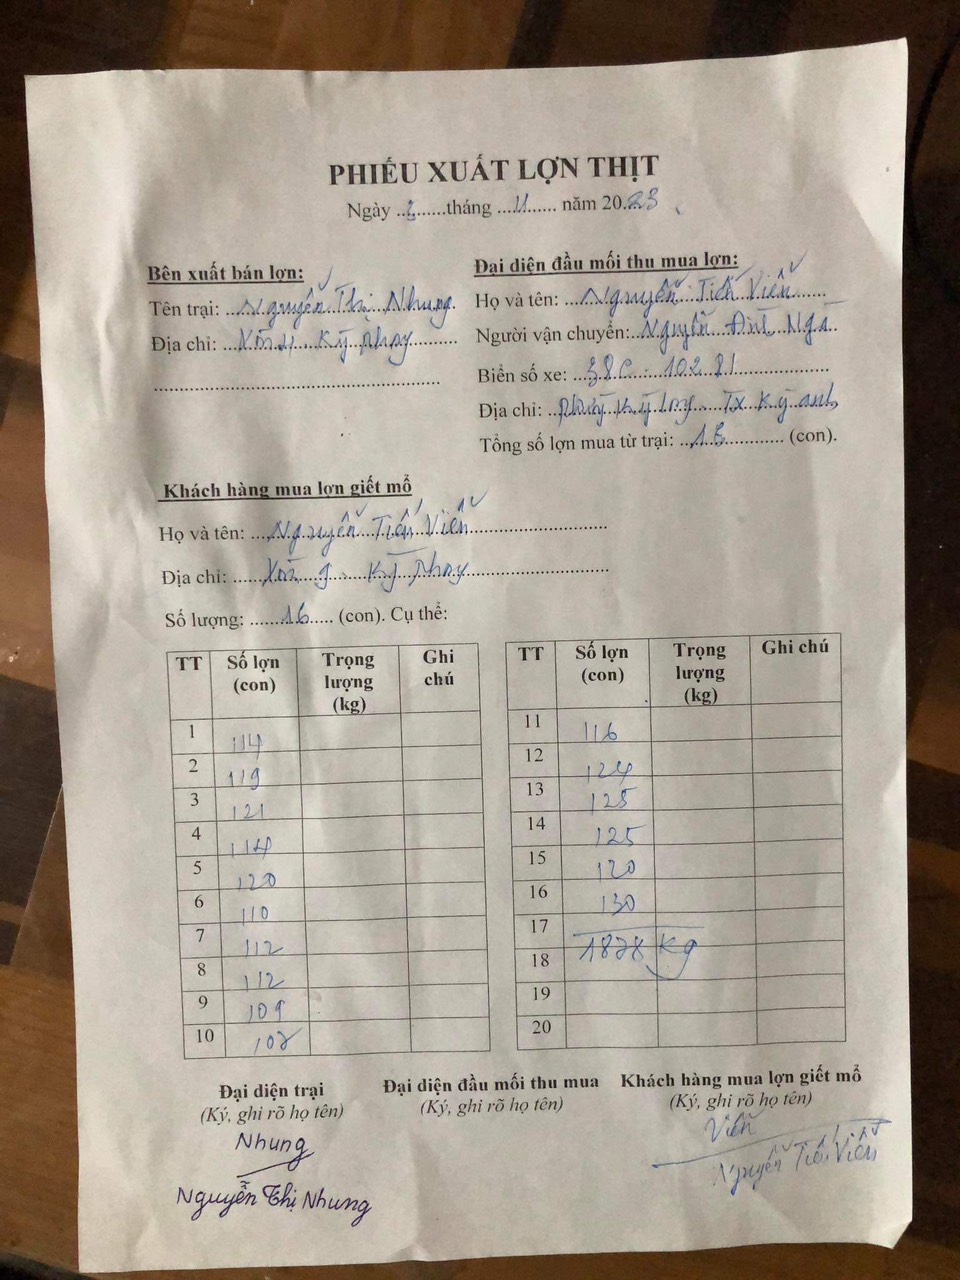 PHIẾU XUẤT LỢN THỊT
Ngày ..2......tháng ...11...... năm 20.23
Bên xuất bán lợn:
Tên trại: ..Nguyễn Thị Nhung.
Địa chỉ: ... Kỳ Phay
Đại diện đầu mối thu mua lợn:
Họ và tên: ...Nguyễn Tiến Viễn
Người vận chuyển: Nguyễn Đình Nga
Biển số xe: 38C - 102 81
Địa chỉ: Phường Kỳ Long - Tx Kỳ anh
Tổng số lợn mua từ trại: ..16............ (con).
Khách hàng mua lợn giết mổ
Họ và tên: ...Nguyễn Tiến Viễn
Địa chỉ: ...Xóm 9 - Kỳ Phay
Số lượng: ........16..... (con). Cụ thể:
TT Số lợn (con) Trọng lượng (kg) Ghi chú
1 114
2 119
3 121
4 114
5 120
6 110
7 112
8 112
9 109
10 107
TT Số lợn (con) Trọng lượng (kg) Ghi chú
11 116
12 124
13 125
14 125
15 120
16 130
17
18 1878 kg
19
20
Đại diện trại
(Ký, ghi rõ họ tên)
Nhung
Nguyễn Thị Nhung
Đại diện đầu mối thu mua
(Ký, ghi rõ họ tên)
Khách hàng mua lợn giết mổ
(Ký, ghi rõ họ tên)
Viễn
Nguyễn Tiến Viễn